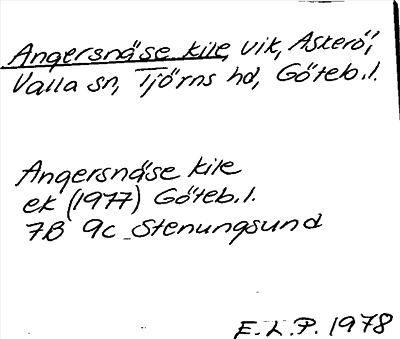 Angersnäse kile, vik, Askerö,
Valla sn, Tjörns hd, Göteb.l.
Angersnäse kile
ek (1977) Göteb.l.
7B 9c Stenungsund
E.L.P. 1978